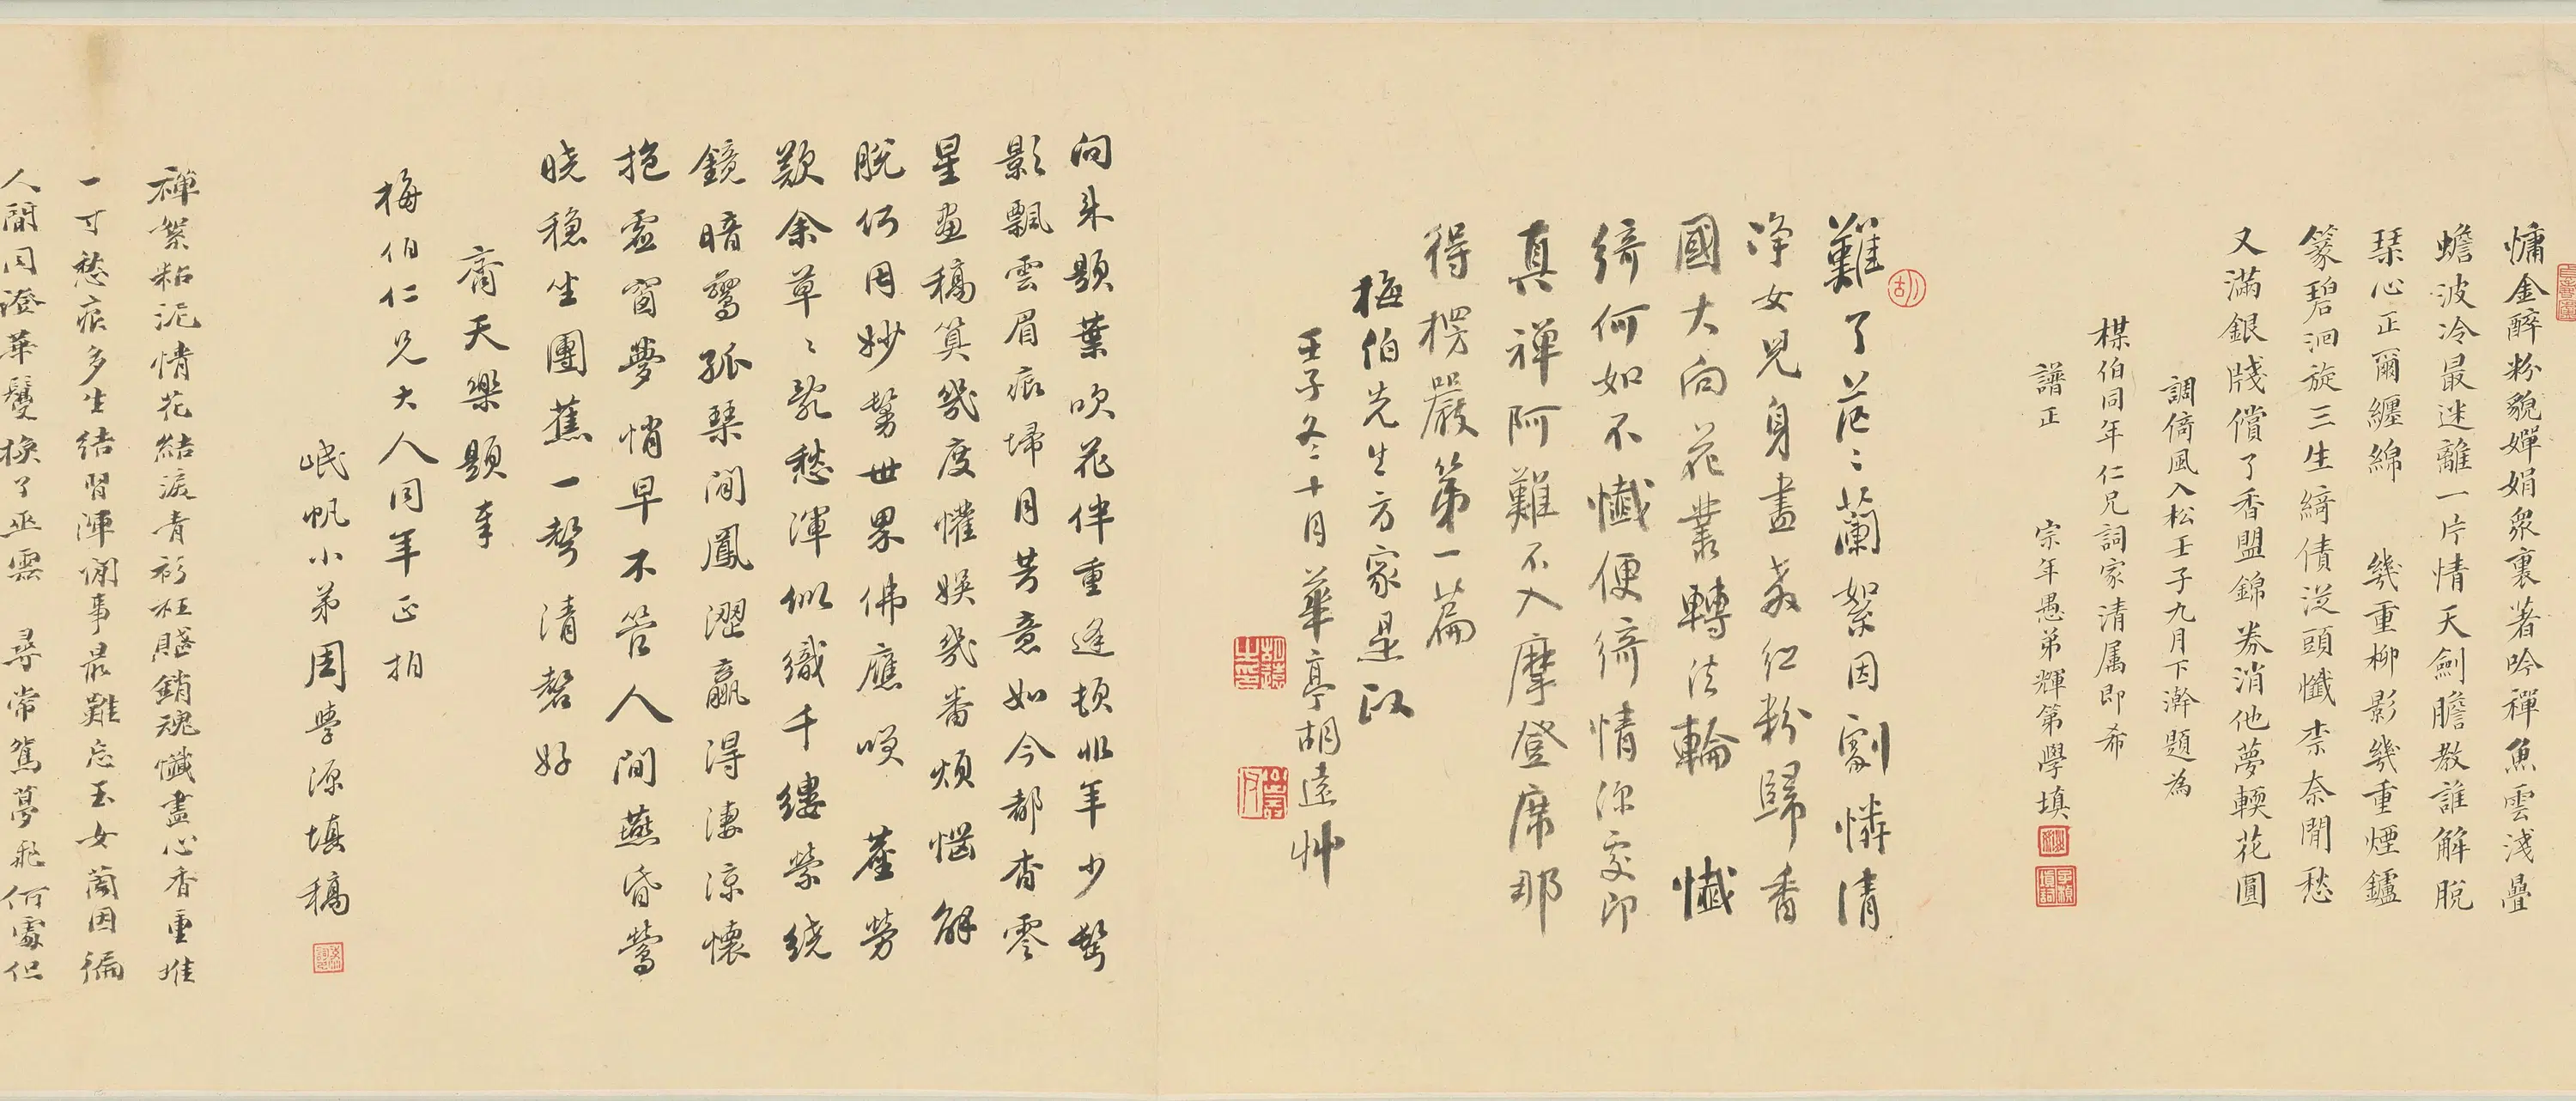 慵金醉粉貌嬋娟衆裏著吟禪魚雲淺疊
蟾波冷最迷離一片情天劍膽教誰解脫
琹心正爾纏綿 幾重柳影幾重煙鑪
篆碧迴旋三生綺債從頭懺柰奈閒愁
又滿銀牋償了香盟錦券消他夢輭花圓
調倚風入松壬子九月下澣題為
楳伯同年仁兄詞家清属即希
譜正 宗年愚弟輝第學填
難了茫〻蘭絮因劉憐情
淨女兒身盡教红粉歸香
國大向花叢轉法輪 懺
綺何如不懺便綺情深處即
真禅阿難不入摩登席那
得楞嚴第一篇
梅伯先生方家是政
壬子冬十月華亭胡遠艸
向來題葉吹花伴重逢頓非年少鬢
影飄雲眉痕埽月芳意如今都杳零
星畫稿算幾度懽娱幾番煩惱解
脫何因妙鬘世界佛應唉 塵勞
歎余草〻亂愁渾似織千縷縈繞
鏡暗鸞孤琹閒鳳澀贏得淒涼懷
抱虛窗夢悄早不管人間燕昏鶯
曉穩坐團蕉一聲清磬好
齊天樂題奉
梅伯仁兄大人同年正拍
岷帆小弟周學源填稿
禅絮粘泥情花結淚青衫狂賸銷魂懺盡心香重堆
一寸愁痕多生結習渾閒事最難忘玉女蘭因徧
人間同澄華鬘換了巫雲 尋常駕夢飛何處但